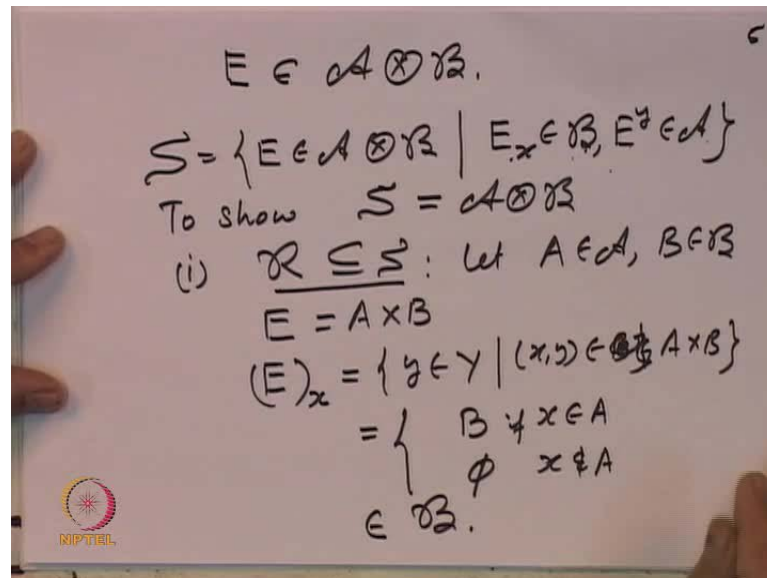 E ∈ 𝒜 ⊗ ℬ.
S = { E ∈ 𝒜 ⊗ ℬ | E_x ∈ ℬ, E^y ∈ 𝒜 }
To show S = 𝒜 ⊗ ℬ
(i) R ⊆ S : Let A ∈ 𝒜, B ∈ ℬ
E = A × B
(E)_x = { y ∈ Y | (x,y) ∈ A × B }
= { B if x ∈ A
ϕ x ∉ A
∈ ℬ.
NPTEL